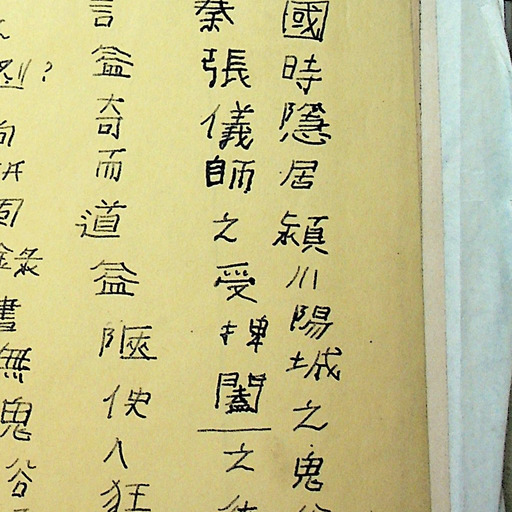 國時隱居潁川陽城之鬼谷
秦張儀師之受捭闔之
言益奇而道益陿使人狂
錄書無鬼谷